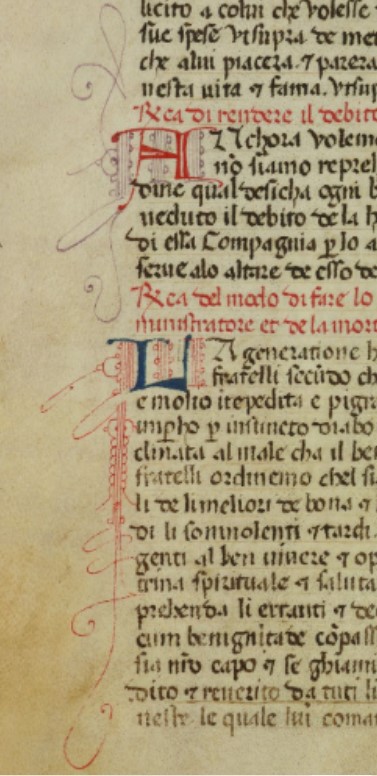 licito a colui che volesse
sue spese ut supra de me
che alui piacera. ⁊ parera
nesta uita ⁊ fama. ut sup
Rca di rendere il debito
ANchora volem
nō siamo repreh
dine qual desicha ogni b
ueduto il debito de la h
di essa Compagnia p lo a
serue alo altare de esso de
Rca del modo di fare lo
ministratore et de la mort
LA generatione h
fratelli secūdo ch
e molto itepedita e pigr
mipho p instincto diabo
clinata al male cha il be
fratelli ordinemo chel su
li de li meliori de bona ⁊
di li somnolenti ⁊ tardi
genti al ben uiuere ⁊ op
trina spirituale ⁊ saluta
prehenda li erranti ⁊ de
cum benignitate cōpass
sia nrō capo ⁊ se ghiami
dito ⁊ reuerito da tuti li
neste le quale lui coman